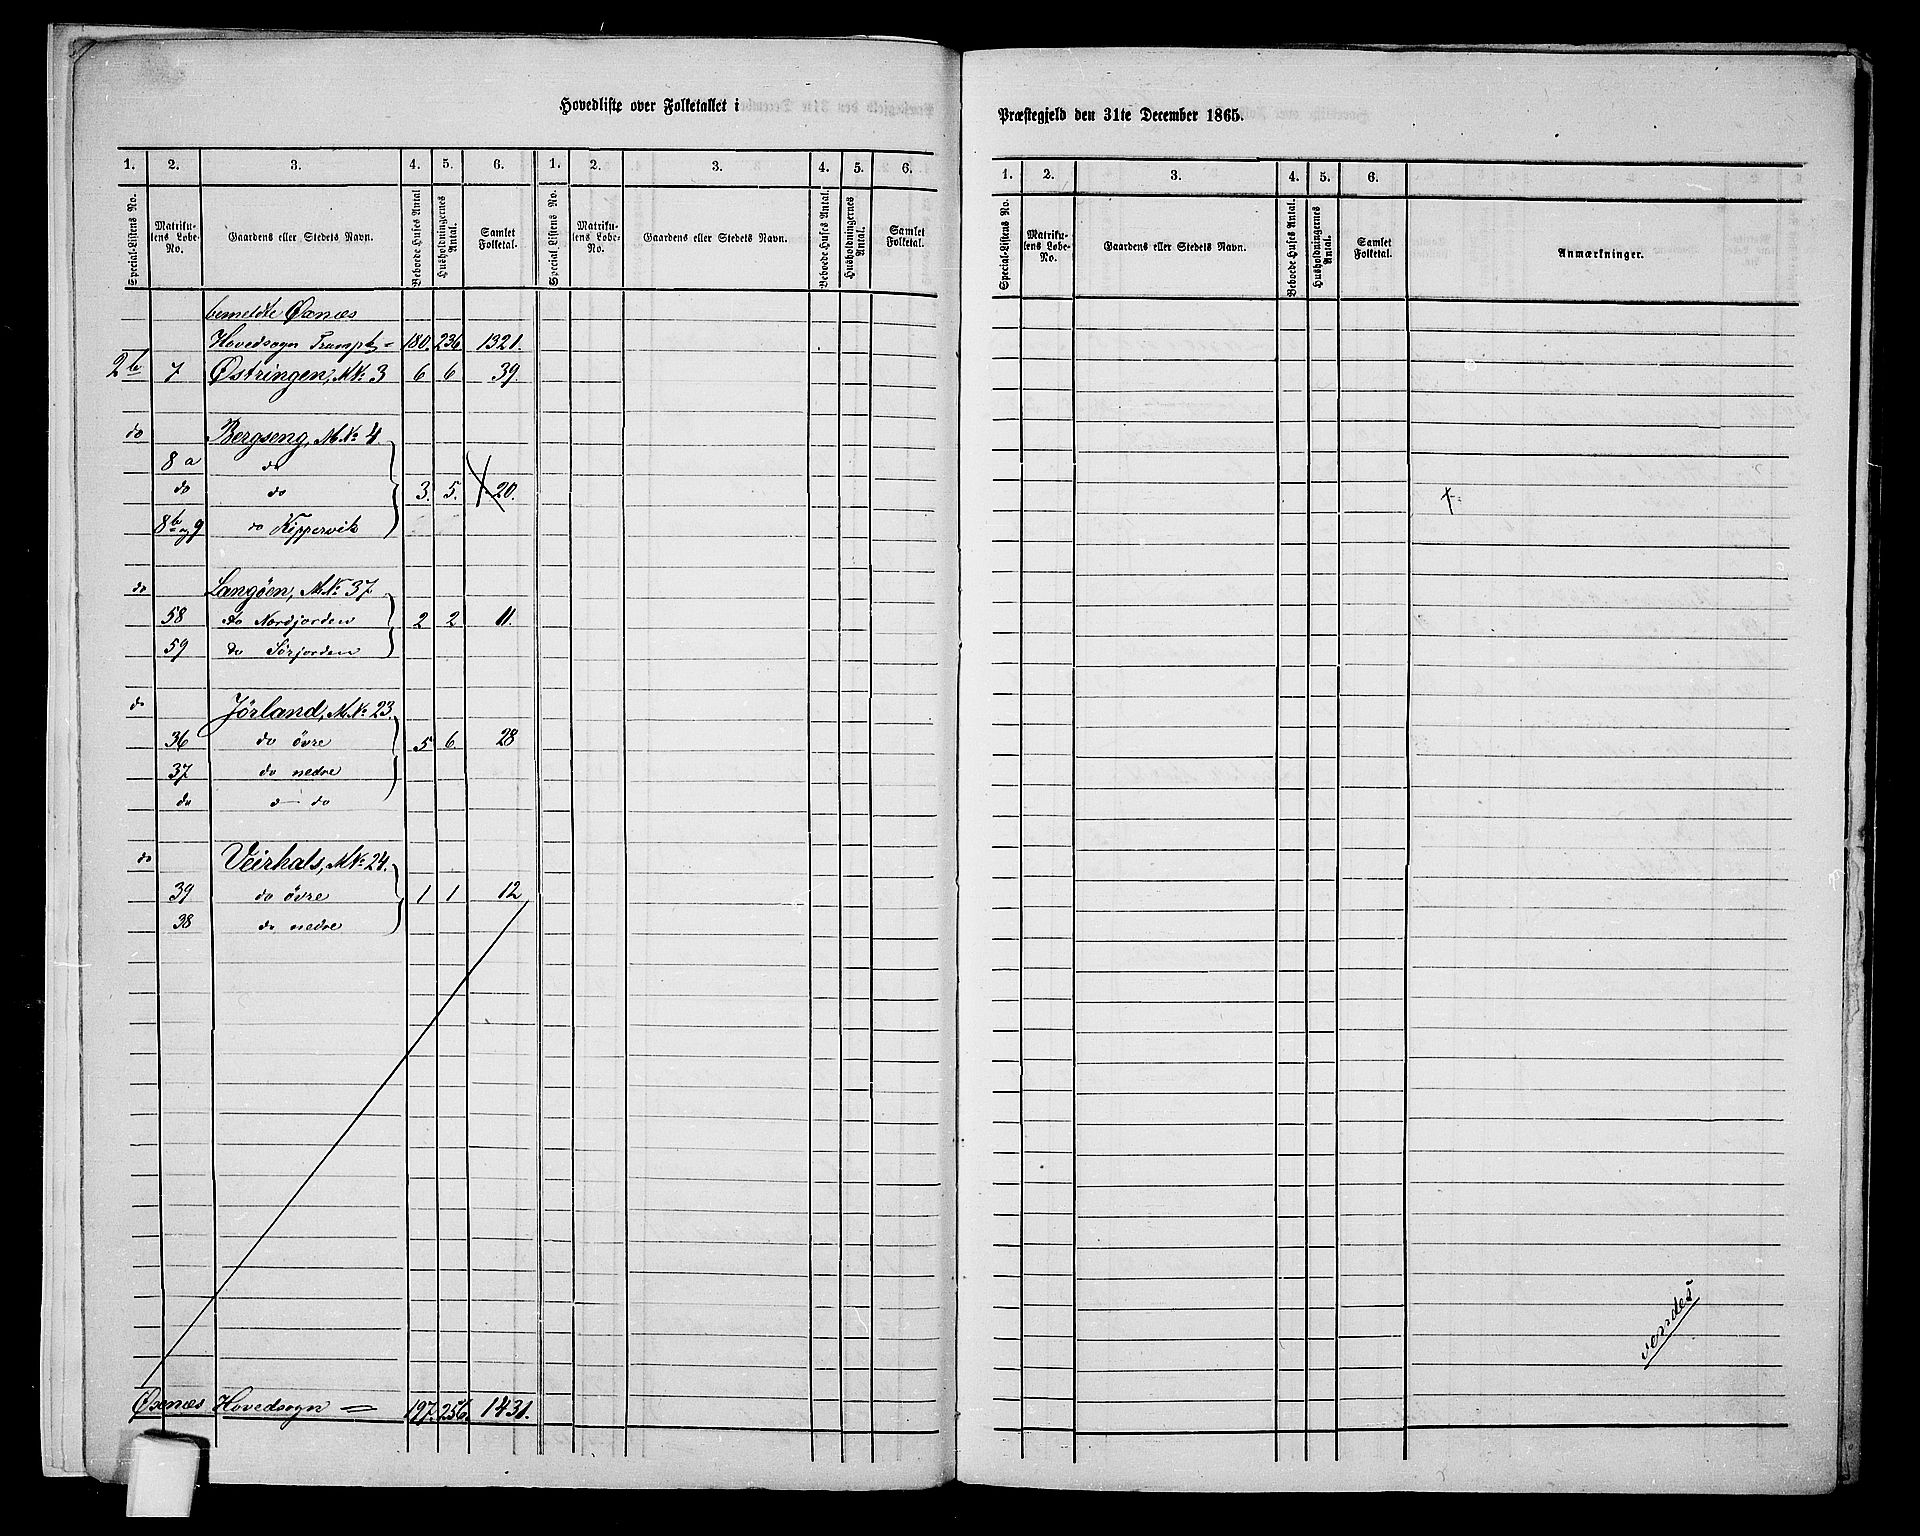 Hovedliste over Folketallet i
1. 2. 3. 4. 5. 6. 1. 2. 3. 4. 5. 6.
Special-Listens No. Matriku-lens Løbe-No. Gaardens eller Stedets Navn. Beboede Huses Antal Husholdningernes Antal. Samlet Folketal. Special-Listens No. Matriku-lens Løbe-No. Gaardens eller Stedets Navn. Beboede Huses Antal. Husholdningernes Antal. Samlet Folketal.
bemeldte Øxnæs
Hovedsogn Transpt = 180. 236 1321.
2b 7 Østringen, M.No 3 6 6 39
do Bergseng, M.No 4.
8 a do
do do 3. 5. X 20.
8b og 9 do Kippervik
do Langöen, M.No 37
58 do Nordjorden 2 2 11.
59 do Sörjorden
do Jörland, M.No 23.
36 do övre 5 6 28
37 do nedre
do d— do
do Veirhals, M.No 24.
39 do övre 1 1 12
38 do nedre
Øxnæs Hovedsogn = 197. 256. 1431.
Præstegjeld den 31te December 1865.
1. 2. 3. 4. 5. 6.
Special-Listens No. Matriku-lens Løbe-No. Gaardens eller Stedets Navn. Beboede Huses Antal. Husholdningernes Antal. Samlet Folketal. Anmærkninger.
X
vendes